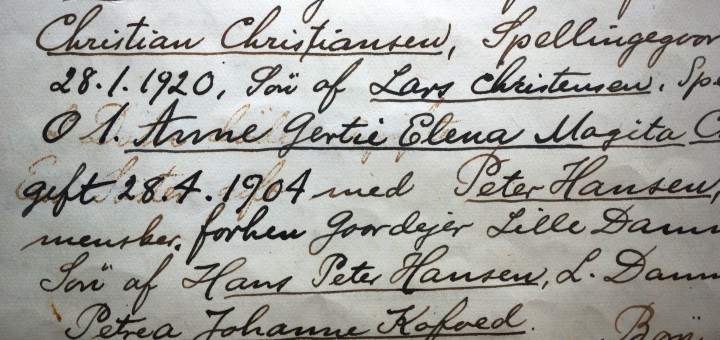 Christian Christiansen, Spellingegaar
28.1.1920, Søn af Lars Christensen, Spe
O 1. Anne Gertie Elena Magita C
gift 28.4.1904 med Peter Hansen,
mensker, forhen Gaardejer Lille Dam
Søn af Hans Peter Hansen, L. Dam
Petrea Johanne Kofoed.